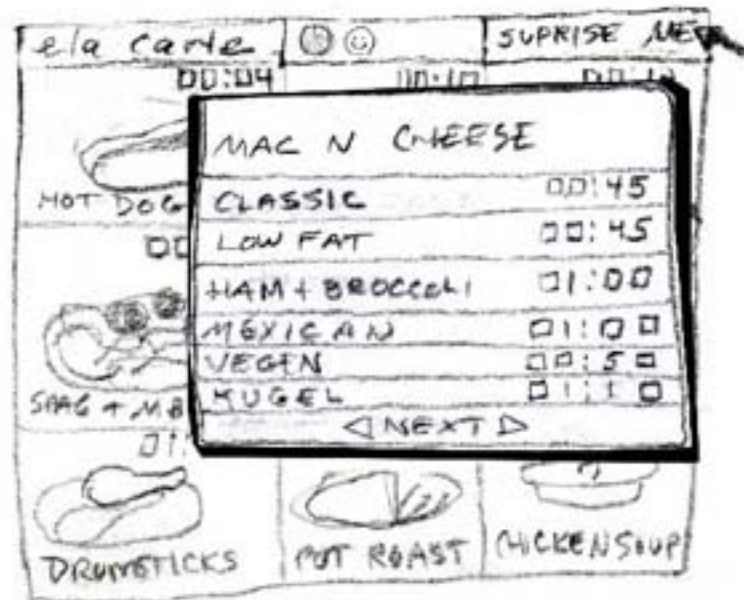 ela carte
SUPRISE ME
00:04
00:10
HOT DOG
MAC N CHEESE
CLASSIC 00:45
LOW FAT 00:45
HAM + BROCCOLI 01:00
MEXICAN 01:00
VEGEN 00:50
KUGEL 01:10
NEXT
SPAG + M.B
01:
DRUMSTICKS
POT ROAST
CHICKEN SOUP